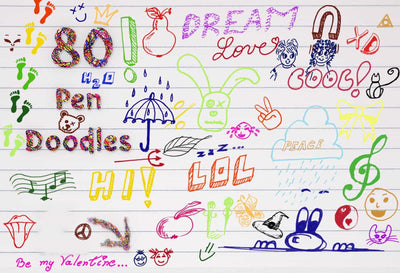 80
Pen
Doodles
H2O
DREAM
Love
XD
COOL!
HI!
LOL
zzz...
PEACE
Be my Valentine...